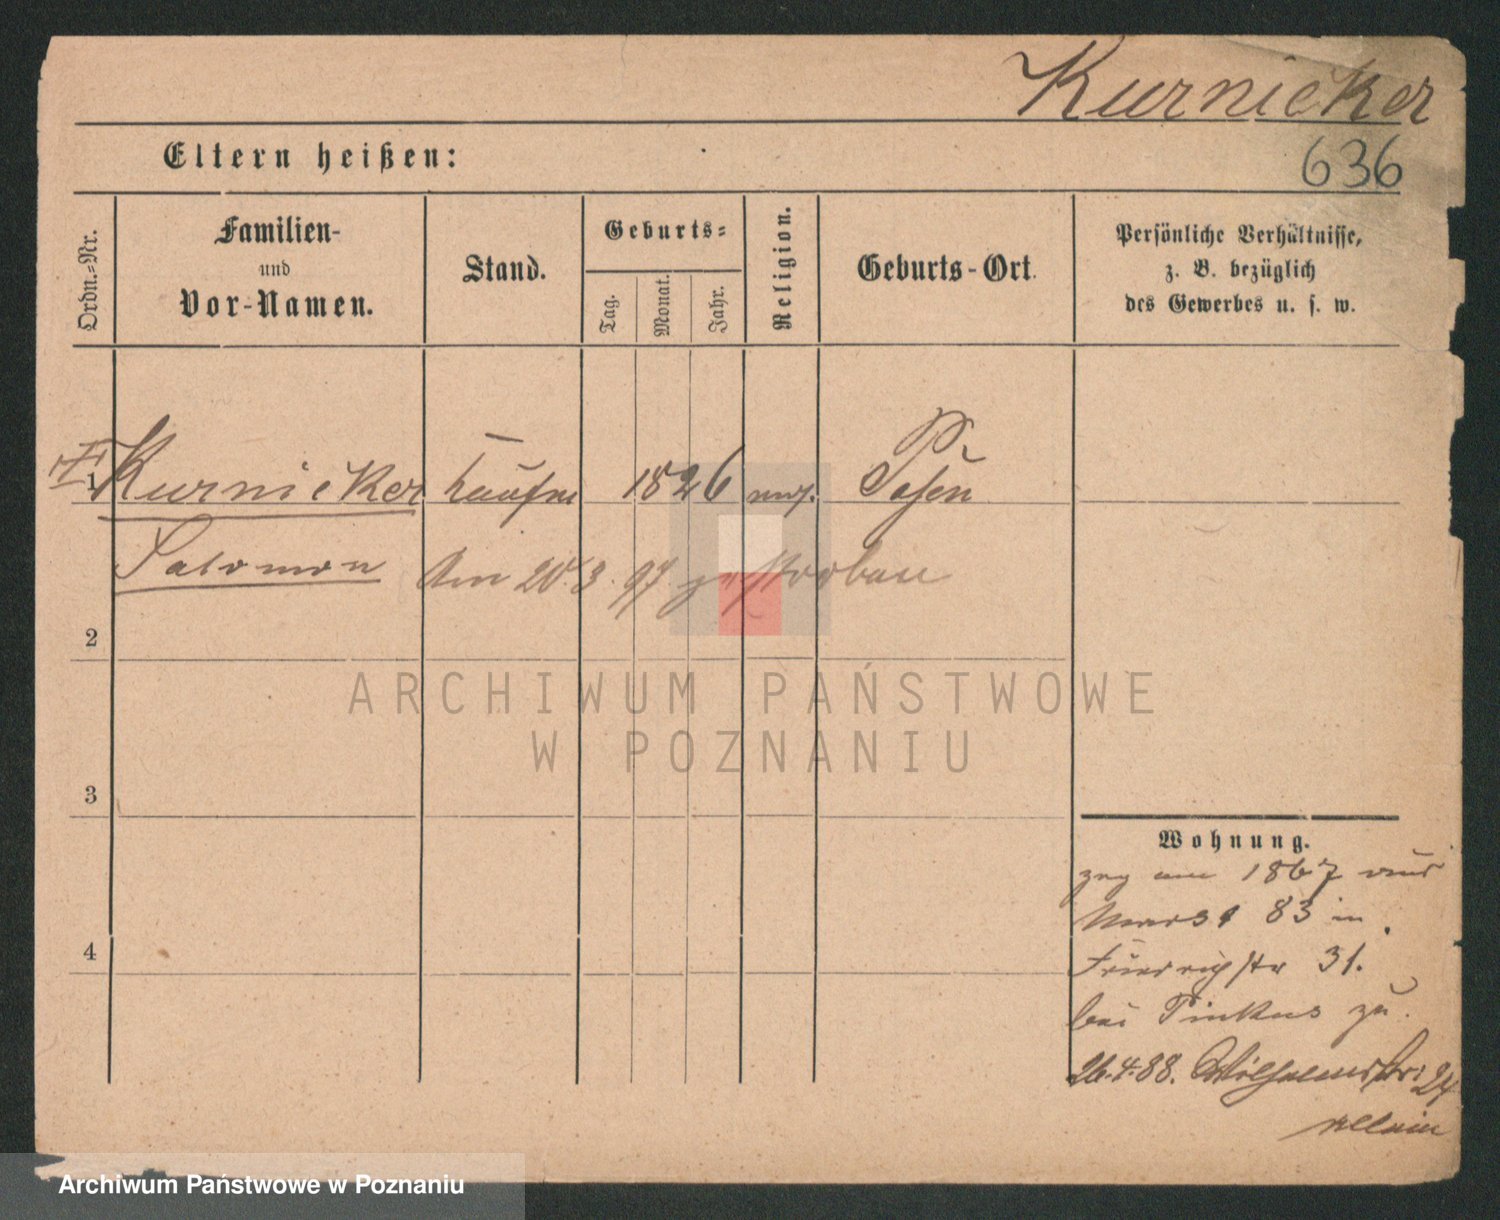 Kurnicker
Eltern heißen:
636
Ordn.-Nr.
Familien-
und
Vor-Namen.
Stand.
Geburts-
Tag.
Monat.
Jahr.
Religion.
Geburts-Ort.
Persönliche Verhältnisse,
z. B. bezüglich
des Gewerbes u. s. w.
1 Kurnicker 1826 mos. Posen
Salomon Am 20.3.97 gestorben
2
ARCHIWUM PAŃSTWOWE
W POZNANIU
3
4
Wohnung.
zog 1867
83 in
Friedrichstr 31.
bei Pinkus zu.
26.4.88. Wilhelmstr. 24
allein
Archiwum Państwowe w Poznaniu